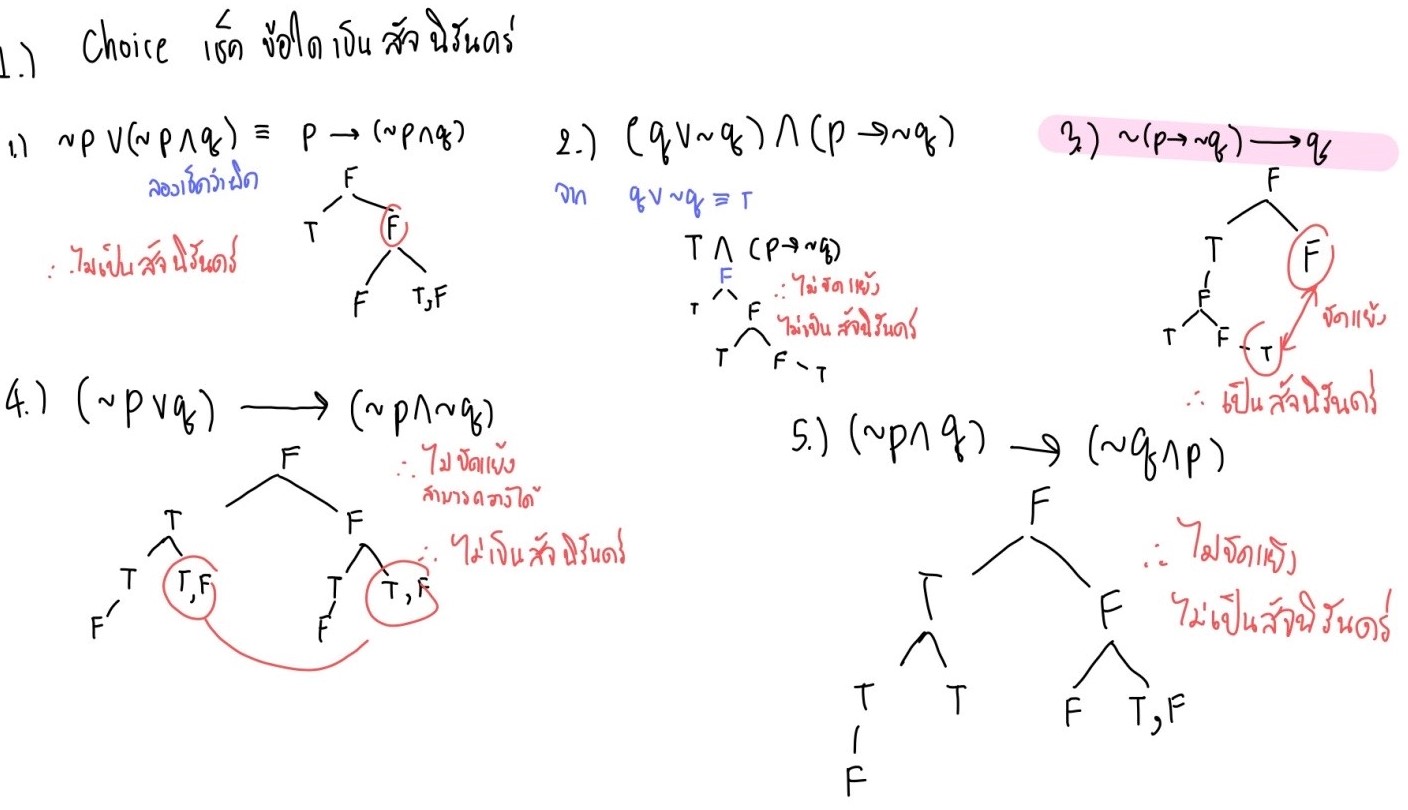 1.) Choice เช็ค ข้อใดเป็น สัจนิรันดร์
1.) ~p ∨ (~p ∧ q) ≡ p → (~p ∧ q)
ลองเช็คว่าผิด
F
T F
F T,F
∴ ไม่เป็นสัจนิรันดร์
2.) (q ∨ ~q) ∧ (p → ~q)
จาก q ∨ ~q ≡ T
T ∧ (p → ~q)
F
T F
T F - T
∴ ไม่ขัดแย้ง
ไม่เป็น สัจนิรันดร์
3.) ~(p → ~q) → q
F
T F
F
T F - T
ขัดแย้ง
∴ เป็นสัจนิรันดร์
4.) (~p ∨ q) → (~p ∧ ~q)
F
T F
T T,F T T,F
F F
∴ ไม่ขัดแย้ง
∴ ไม่เป็นสัจนิรันดร์
5.) (~p ∧ q) → (~q ∧ p)
F
T F
T T F T,F
F
∴ ไม่ขัดแย้ง
ไม่เป็นสัจนิรันดร์